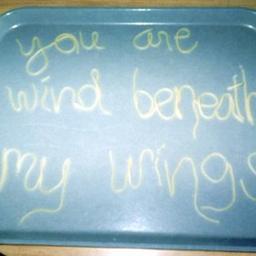 you are
wind beneath
my wings